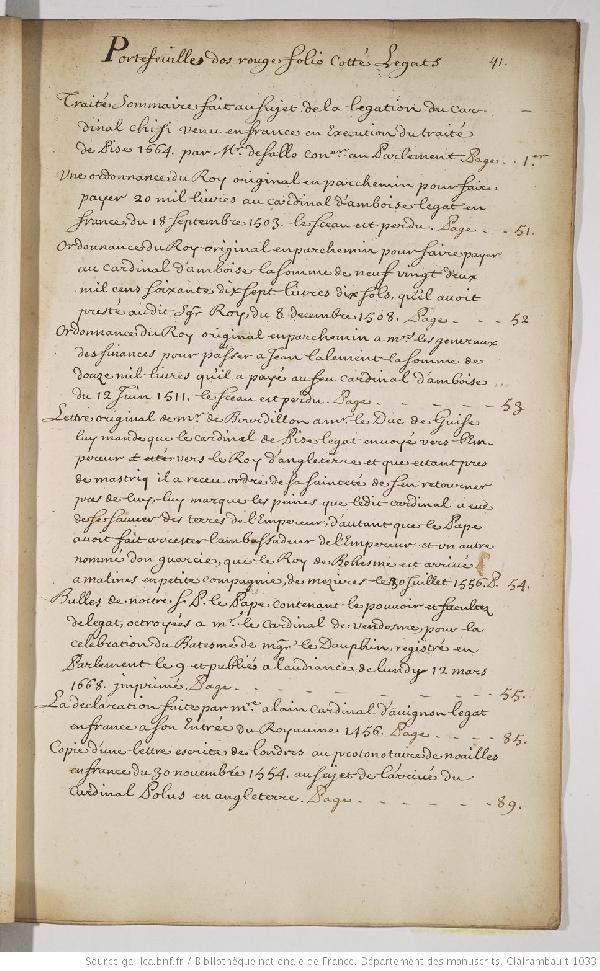 Portefeuilles dos rouge folio cotté Legats 41.
Traité Sommaire fait au sujet de la legation du car-
dinal chisi venu en france en Execution du traité
de Pise 1664. par Mr. de sallo conser. au Parlement Page . . 1.er
Une ordonnance du Roy original en parchemin pour faire
payer 20 mil livres au cardinal d'amboise legat en
france, du 18 septembre 1503. le sceau est perdu. Page - - . 51.
Ordonnance du Roy original en parchemin pour faire payer
au cardinal d'amboise la somme de neuf vingt deux
mil cens soixante dix sept livres dix sols, qu'il avoit
presté audit Sgr. Roy, du 8 decembre 1508. Page - - - . 52
Ordonnance du Roy original en parchemin a mrs. les generaux
des finances pour passer a Jean lalement la somme de
douze mil livres qu'il a payé au feu cardinal d'amboise ...
du 12 Juin 1511. le sceau est perdu. Page - - - - - - 53
Lettre original de mr. de Bourdillon a mr. le Duc de Guise
luy mande que le cardinal de Pise legat envoyé vers l'Em-
pereur et vers le Roy d'angleterre et que estant pres
de mastriq il a receu ordre de sa sainceté de s'en retourner
pres de luy, luy marque les peines que ledit cardinal a eue
de se sauver des terres de l'Empereur, d'autant que le Pape
avoit fait arrester l'ambassadeur de l'Empereur et un autre
nommé don guarcie, que le Roy de Bohesme est arrivé
a malines en petite compagnie, de mezieres le 30 Juillet 1556. P. 54.
Bulles de nostre S. P. le Pape contenant le pouvoir et facultez
de legat, octroyées a mr. le cardinal de vendosme, pour la
celebration du Batesme de mgr. le Dauphin, registré en
Parlement le 9 et publiés a l'audiance de lundy 12 mars
1668. imprimé. Page - - - - - - - - 55.
La declaration faite par mre. alain cardinal d'avignon legat
en france a son Entrée du Royaume 1456. Page - - - - 85.
Copie d'une lettre escrite de londres au protonotaire de noailles
en france du 30 novembre 1554. au sujet de l'arivé du
Cardinal Polus en angleterre. Page - - - - - - - 89.
Source gallica.bnf.fr / Bibliothèque nationale de France. Département des manuscrits. Clairambault 1033